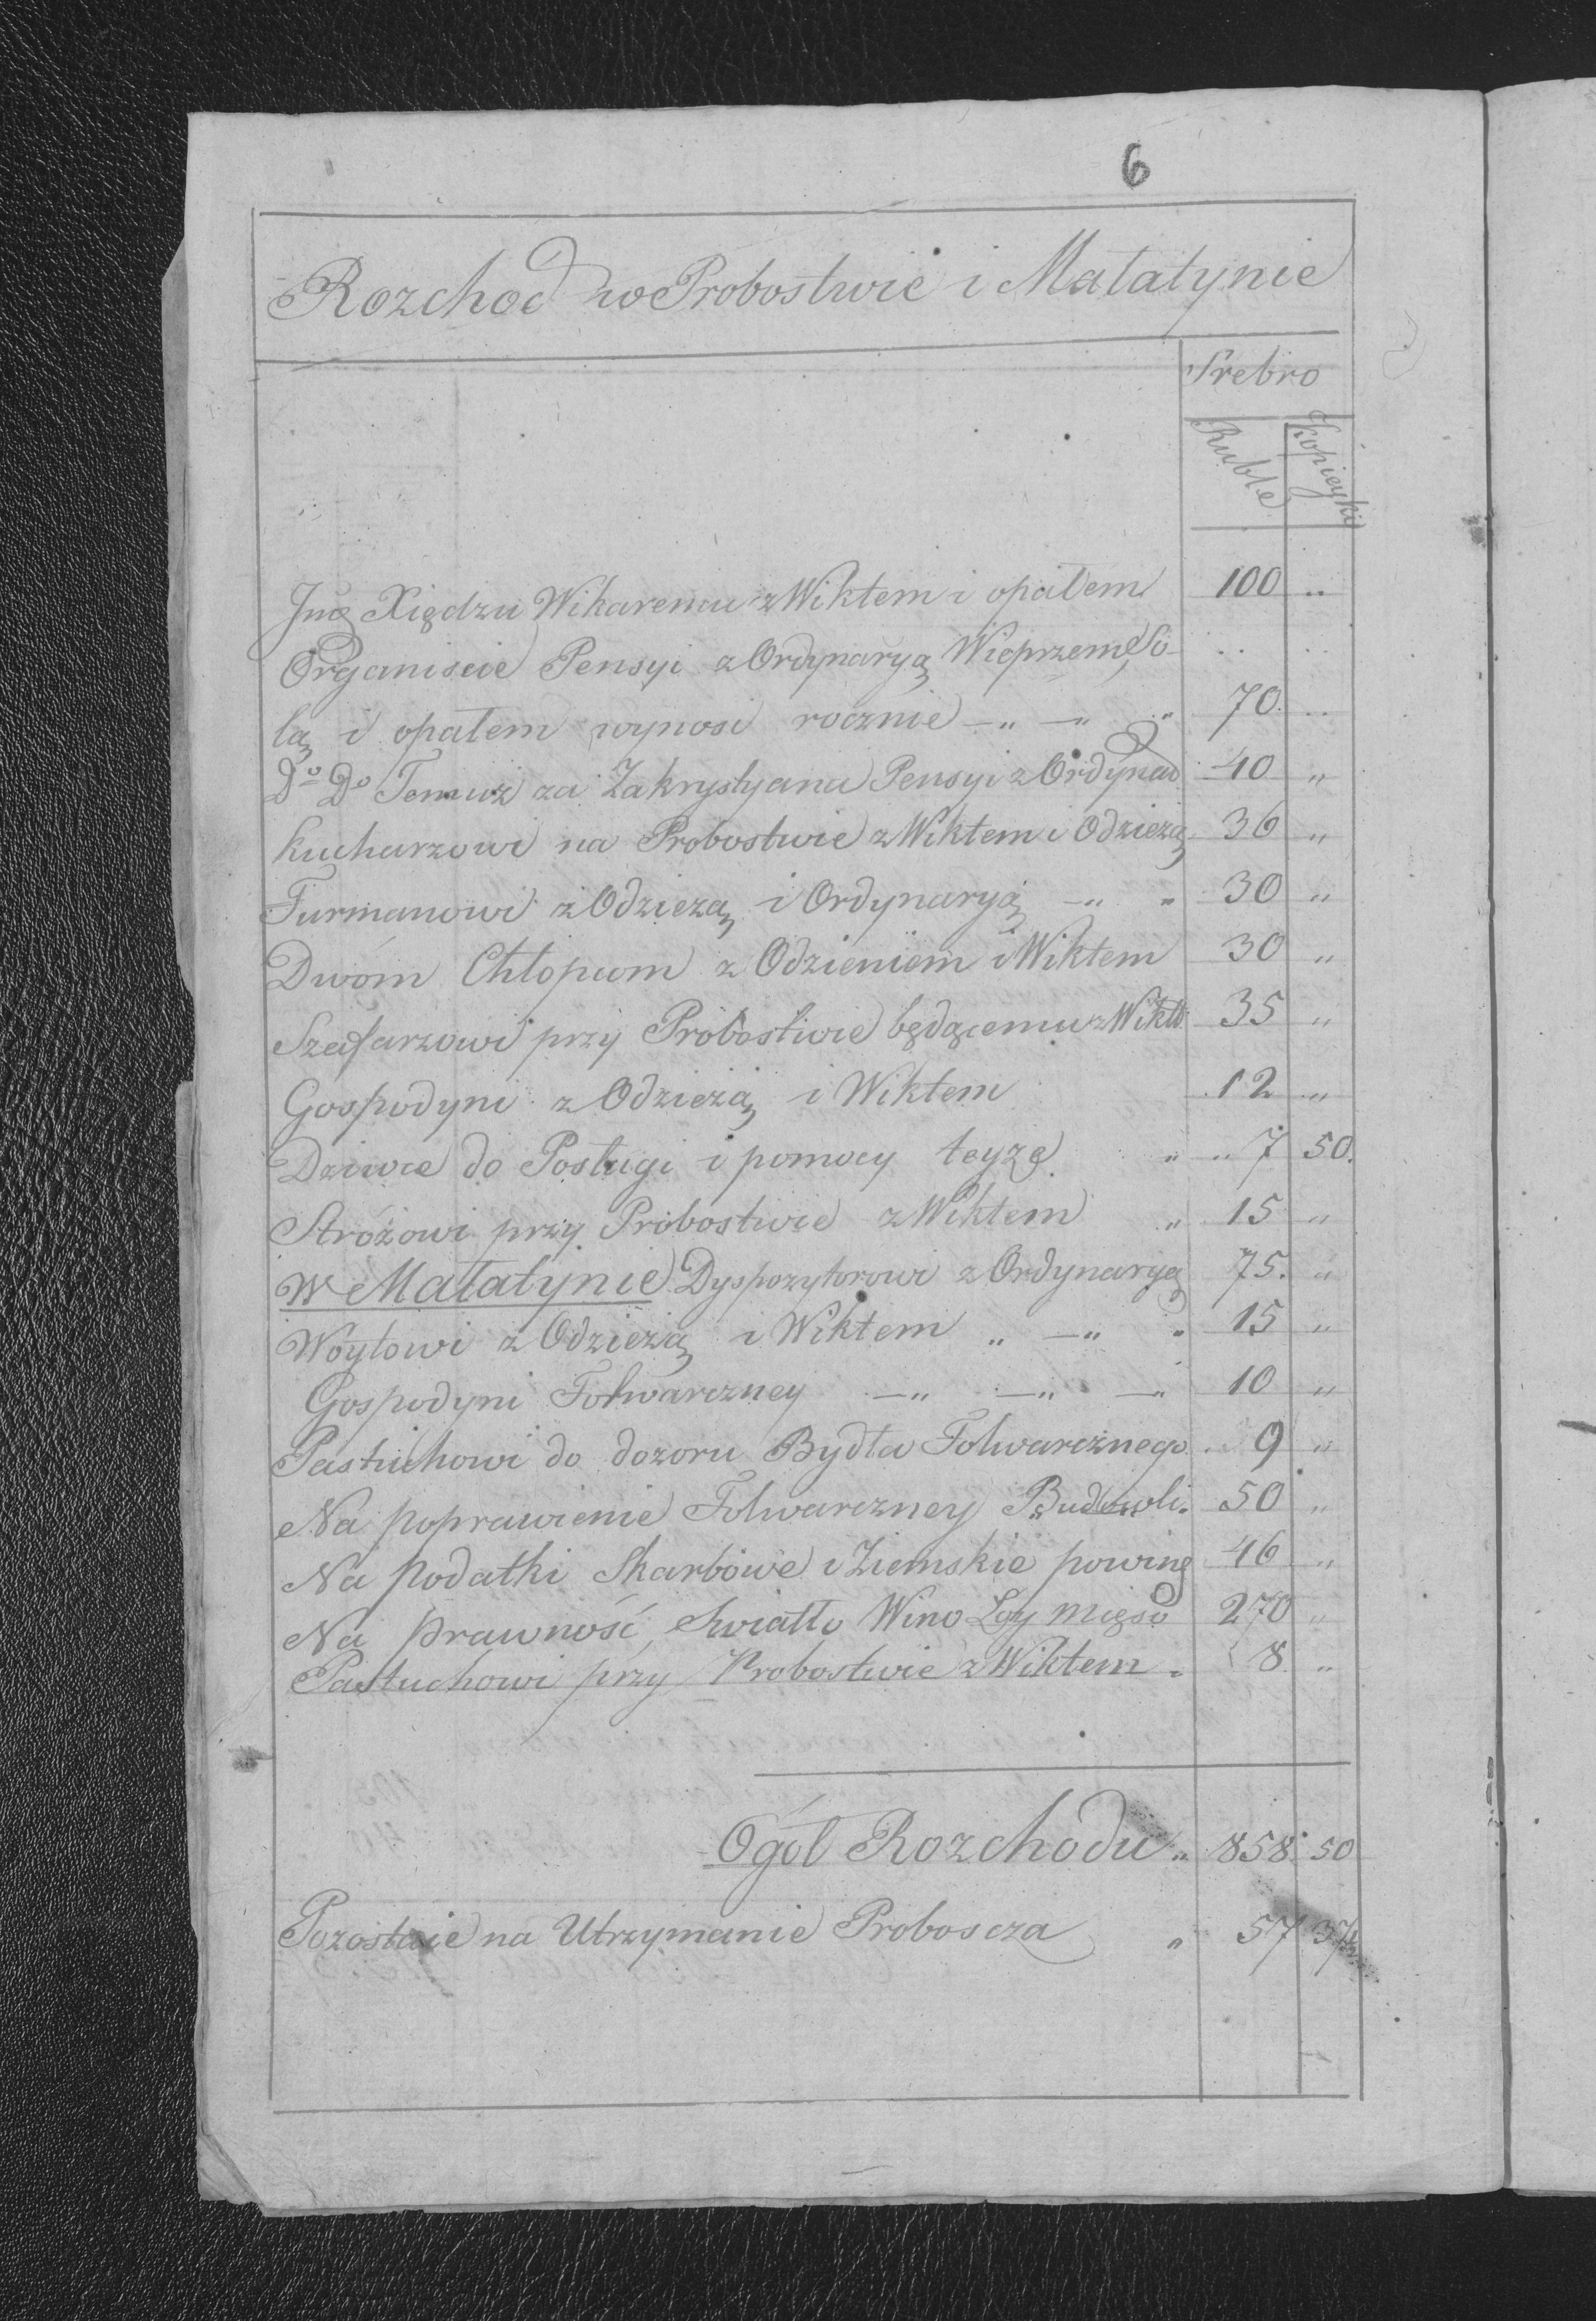 6
Rozchod w Probostwie i Małatynie
Srebro
Ruble Kopieyki
Xiędzu Wikaremu z Wiktem i opałem 100 ..
Organiscie Pensyi z Ordynaryą Wieprzem, So- .. ..
lą i opałem wynosi rocznie —„ —„ „ 70. ..
Do Do Temuż za Zakrystyana Pensyi z Ordynad 40 „
Kucharzowi na Probostwie z Wiktem i Odzieżą 36 „
Furmanowi z Odzieżą i Ordynaryą —„ „ 30 „
Dwóm Chłopcom z Odzieniem i Wiktem 30 „
Szafarzowi przy Probostwie będącemu z Wikt 35 „
Gospodyni z Odzieżą i Wiktem 12 „
Dziwce do Posługi i pomocy teyże „ .. 7 50.
Stróżowi przy Probostwie z Wiktem „ 15 „
W Małatynie Dyspozytorowi z Ordynaryą 75. „
Woytowi z Odzieżą i Wiktem „ —„ „ 15 „
Gospodyni Folwarczney —„ —„ —„ 10 „
Pastuchowi do dozoru Bydła Folwarcznego 9 „
Na poprawienie Folwarczney Budowli. 50 „
Na podatki Skarbowe i Ziemskie powing 46 „
Na Prawność, Swiatło Wino Łoy mięso 270 „
Pastuchowi przy Probostwie z Wiktem „ 8 „
Ogół Rozchodu „ 858. 50
Pozostaie na Utrzymanie Proboscza „ 57 37½